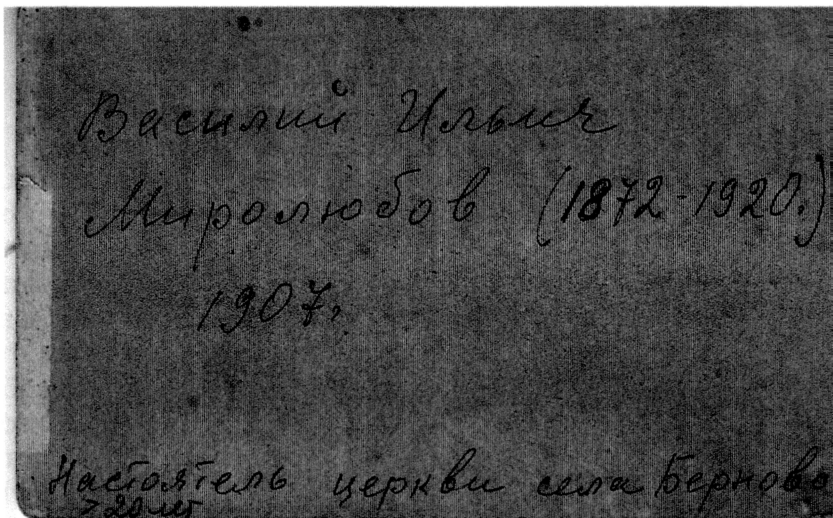 Василий Ильич
Миролюбов (1872-1920.)
1907г
Настоятель церкви села Берново
>20 лет